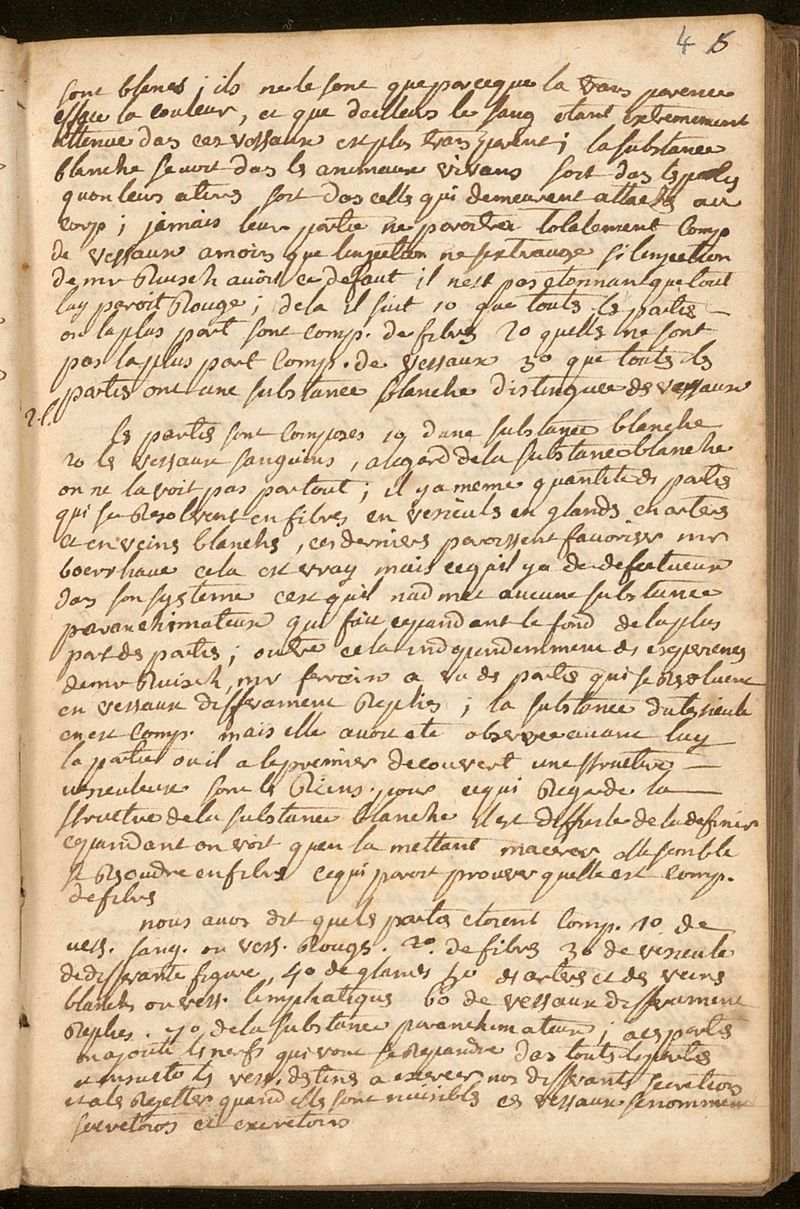 4 5
sont blancs ; ils ne le sont que parceque la trans parence
efface la couleur, et que dailleurs le sang etant extremement
attenué das ces vessaux est plus transparent ; la substance
blanche se voit das ls animaux vivans soit das ls
quon leurs a tirés soit das cells qui demeurent attachés au
corp ; jamais leur partie ne paroitra totalement comp
de vessaux amoins que linjection ne sextravase si linjection
de mr Ruisch avoit ce defaut il nest pas etonnant que tout
luy paroit Rouge ; de la il suit 1o que touts ls partis
ou la plus part sont comp. de fibrs 2o quells ne sont
pas la plus part comp. de vessaux 3o que touts ls
partis ont une substance blanche distinguée ds vessaux
ls partis sont composés 1o dune substance blanche
2o ls vessaux sanguins, alegard de la substance blanche
on ne la voit pas partout ; il y a meme quantité ds partis
qui se Resolvent en fibrs en vesiculs en glands en arters
et en veins blanchs, ces derniers paroissent favoriser mr
boerrhaue cela est vray mais cequil y a de defectueux
das son systeme cest quil nadmet aucune substance
paranchimateux qui fait cependant le fond de la plus
part ds partis ; outre cela independemment ds experiencs
de mr Ruisch, mr ferrein a vu ds partis qui se Resoluent
en vessaux differament Repliés ; la substance du testicule
en est comp. mais elle avoit eté observée avant luy
la partie ou il a le premier decouvert une structure
vesiculeuse sont ls Reins. pour cequi Regarde la
structure de la substance blanche il est difficile de la definir
cependant on voit quen la mettant macerer elle semble
se Resoudre en fibrs cequi paroit prouver quelle est comp.
de fibrs
nous avos dit quels partis etoient comp. 1o. de
vess. sang. ou vess. Rougs. 2o. de fibrs 3o de vesicule
de differante figure, 4o de glands 5o ds arters et ds veins
blanchs ou vess. limphatiqus 6o de vessaux differament
Repliés. 7o de la substance paranchimateux ; a ces partis
on ajoute ls nerfs qui vont se Repandre das touts ls partis
et ensuite ls vess. destins a exercer nos differants secretions
et a ls Rejetter quand ells sont nuisibls ces vessaux se nomment
secretoirs et excretoirs